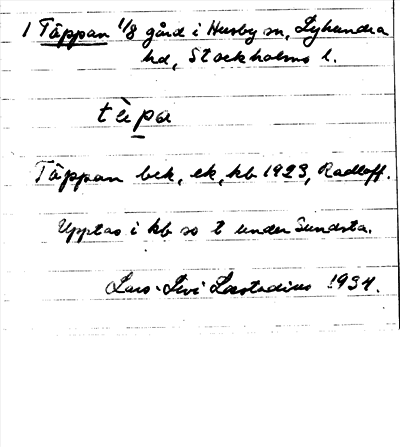 1 Täppan 1/8 gård i Husby sn, Lyhundra
hd, Stockholms l.
tɛ̀pa
Täppan bek, ek, kb 1923, Radloff.
Upptas i kb so t under Sundsta.
Lars-Levi Læstadius 1934.